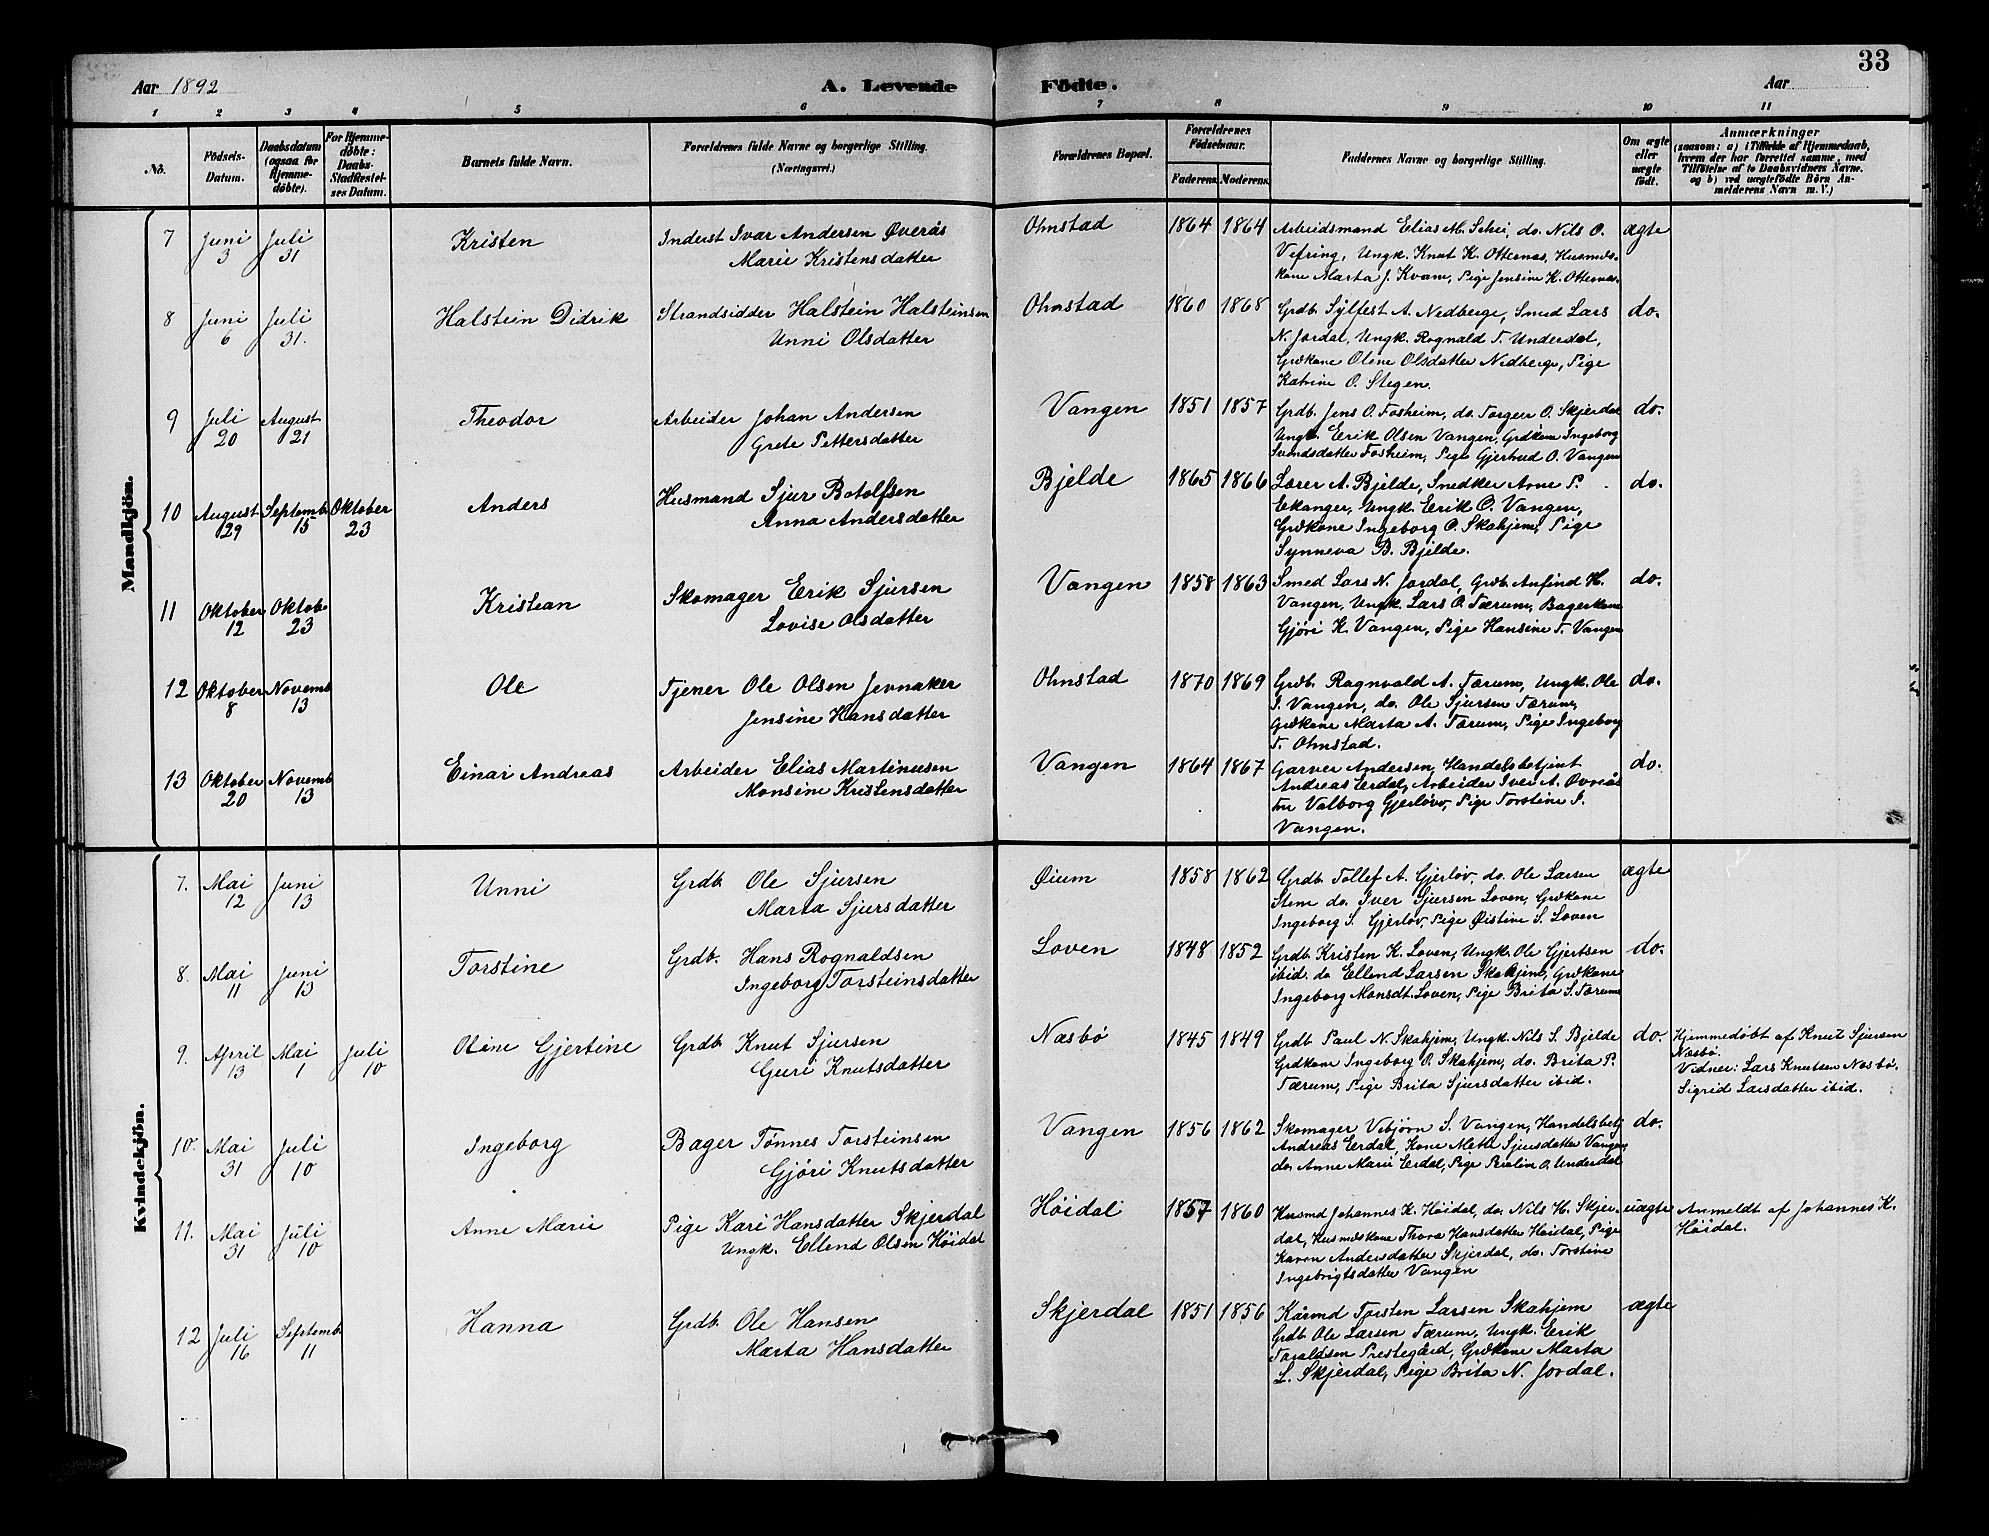 33
Aar 1892
A. Levende
Födte.
Aar
1 2 3 4 5 6 7 8 9 10 11
No.
Födsels-
Datum.
Daabsdatum
(ogsaa for
Hjemme-
döbte).
For Hjemme-
döbte:
Daabs-
Stadfæstel-
ses Datum.
Barnets fulde Navn.
Forældrenes fulde Navne og borgerlige Stilling.
(Næringsvei.)
Forældrenes Bopæl.
Forældrenes
Födselsaar.
Faderens. Moderens.
Faddernes Navne og borgerlige Stilling.
Om ægte
eller
uægte
födt.
Anmærkninger
(saasom: a) i Tilfælde af Hjemmedaab,
hvem der har forrettet samme, med
Tilföielse af to Daabsvidners Navne.
og b) ved uægtefödte Börn An-
melderens Navn m. V.)
Mandkjön.
7 Juni 3 Juli 31 Kristen
Inderst Ivar Andersen Øverås
Marie Kristensdatter
Ohnstad 1864 1864
Arbeidsmand Elias M. Schei, do. Nils O.
Vefring, Ungk. Knut K. Otternas, Husmds.
kone Marta J. Kvam, Pige Jensine K. Otternas.
ægte
8 Juni 6 Juli 31. Halstein Didrik
Strandsidder Halstein Halsteinsen
Unni Olsdatter
Ohnstad 1860 1868
Grdb. Sylfest A. Nedberge, Smed Lars
N. Jordal, Ungk. Rognald T. Underdal,
Grdkone Oline Olsdatter Nedberge, Pige
Katrine O. Stegen.
do.
9 Juli 20 August 21 Theodor
Arbeider Johan Andersen
Grete Pettersdatter
Vangen 1851 1857
Grdb. Jens O. Fosheim, do. Torgeir O. Skjerdal
Ungk. Erik Olsen Vangen, Grdkone Ingeborg
Svendsdatter Fosheim, Pige Gjertrud O. Vangen
do.
10 August 29 Septemb. 15 Oktober 23 Anders
Husmand Sjur Botolfsen
Anna Andersdatter
Bjelde 1865 1866
Lærer A. Bjelde, Snedker Arne P.
Ekanger, Ungk. Erik O. Vangen,
Grdkone Ingeborg O. Skahjem, Pige
Synneva B. Bjelde.
do.
11 Oktober 12 Oktob. 23 Kristian
Skomager Erik Sjursen
Lovise Olsdatter
Vangen 1858 1863
Smed Lars N. Jordal, Grdb. Anfind H.
Vangen, Ungk. Lars O. Tærum, Bagerkone
Gjöri K. Vangen, Pige Hansine T. Vangen
do.
12 Oktober 8 Novemb 13 Ole
Tjener Ole Olsen Jevnaker
Jensine Hansdatter
Ohnstad 1870 1869
Grdb. Ragnvald A. Tærum, Ungk. Ole
I. Vangen, do. Ole Sjursen Tærum,
Grdkone Marta A. Tærum, Pige Ingeborg
T. Ohnstad.
do.
13 Oktober 20 Novemb 13 Einar Andreas
Arbeider Elias Martinusen
Monsine Kristensdatter
Vangen 1864 1867
Garver Andersen, Handelsbetjent
Andreas Erdal, Arbeider Iver A. Øverås
Fru Valborg Gjerløv, Pige Torstine I.
Vangen.
do.
Kvindekjön.
7. Mai 12 Juni 13 Unni
Grdb. Ole Sjursen
Marta Sjursdatter
Øium 1858 1862
Grdb. Tollef A. Gjerløv, do. Ole Larsen
Stene do. Iver Sjursen Loven, Grdkone
Ingeborg S. Gjerløv, Pige Øistine S. Loven
ægte
8. Mai 11 Juni 13 Torstine
Grdb. Hans Rognaldsen
Ingeborg Torsteinsdatter
Loven 1848 1852
Grdb. Kristen K. Loven, Ungk. Ole Gjertsen
ibid. do Ellend Larsen Skahjem, Grdkone
Ingeborg Monsdt. Loven, Pige Brita S. Tærum
do.
9. April 13 Mai 1 Juli 10 Oline Gjertine
Grdb. Knut Sjursen
Guri Knutsdatter
Næsbö 1845 1849
Grdb. Paul N. Skahjem, Ungk. Nils S. Bjelde
Grdkone Ingeborg O. Skahjem, do. Brita P.
Tærum, Pige Brita Sjursdatter ibid.
do.
Hjemmedöbt af Knut Sjursen
Næsbö.
Vidner: Lars Knutsen Næsbö,
Sigrid Larsdatter ibid.
10. Mai 31 Juli 10 Ingeborg
Bager Tönnes Torsteinsen
Gjöri Knutsdatter
Vangen 1856 1862
Skomager Vebjörn S. Vangen, Handelsbetj.
Andreas Erdal, Kone Mette Sjursdatter Vangen,
do. Anne Marie Erdal, Pige Perolin O. Underdal
do.
11. Mai 31 Juli 10 Anne Marie
Pige Kari Hansdatter Skjerdal
Ungk. Ellend Olsen Höidal
Höidal 1857 1860
Husmd Johannes K. Höidal, do. Nils H. Skjer-
dal, Husmdskone Thora Hansdatter Höidal, Pige
Karen Andersdatter Skjerdal, do. Torstine
Ingebrigtsdatter Vangen
uægte
Anmeldt af Johannes K.
Höidal.
12 Juli 16 Septemb. 11 Hanna
Grdb. Ole Hansen
Marta Hansdatter
Skjerdal 1851 1856
Kårmd Torsten Larsen Skahjem
Grdb. Ole Larsen Tærum, Ungk. Erik
Taraldsen Prestegård, Grdkone Marta
L. Skjerdal, Pige Brita N. Jordal.
ægte